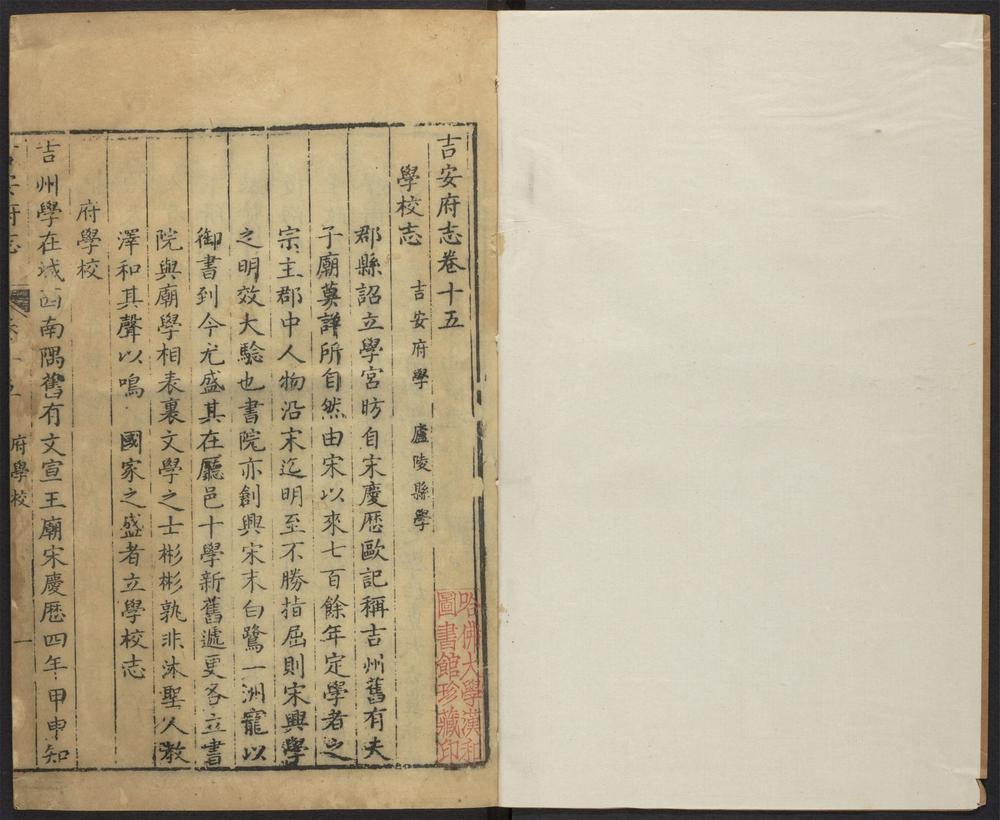 吉安府志卷十五
學校志 吉安府學 廬陵縣學
郡縣詔立學宮昉自宋慶歷歐記稱吉州舊有夫
子廟奠詳所自然由宋以來七百餘年定學者之
宗主郡中人物沿宋迄明至不勝指屈則宋興學
之明效大驗也書院亦創興宋末白鷺一洲寵以
御書到今尤盛其在廳邑十學新舊遞更各立書
院與廟學相表裏文學之士彬彬孰非沐聖人教
澤和其聲以鳴 國家之盛者立學校志
府學校
吉州學在城西南隅舊有文宣王廟宋慶歷四年甲申知
吉安府志 卷十五 府學校 一
哈佛大學漢和
圖書館珍藏印